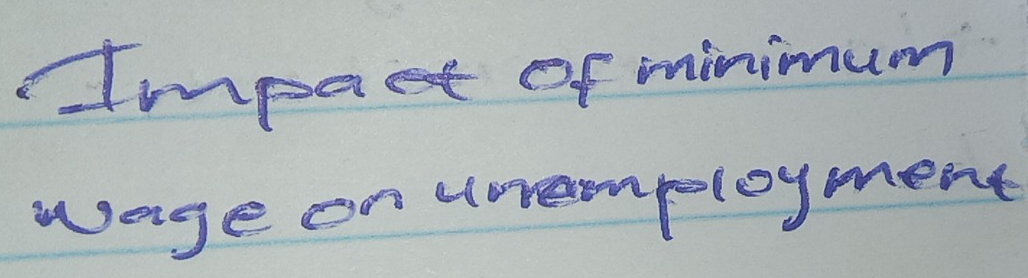 Impact of minimum
wage on unemployment